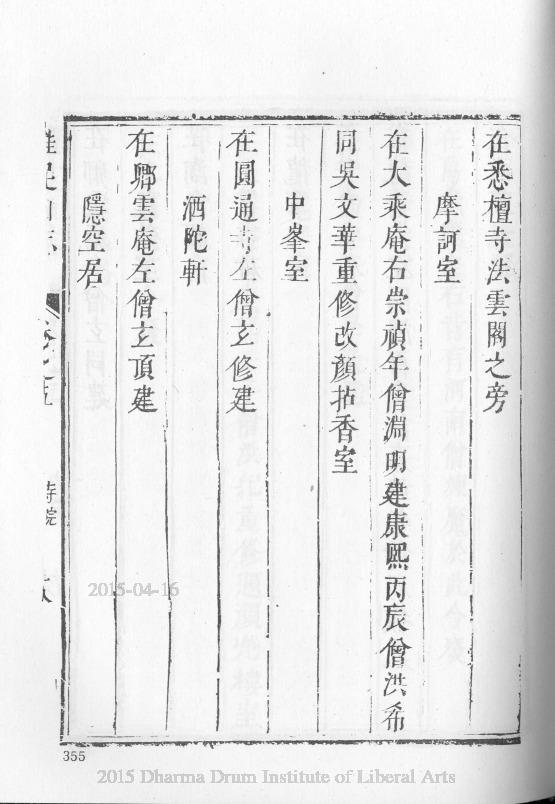 在悉檀寺法雲閣之旁
摩訶室
在大乘庵右崇禎年僧淵明建康熙丙辰僧洪希
同吳文華重修改顏拈香室
中峯室
在圓通寺左僧玄修建
酒陀軒
在卿雲庵左僧玄頂建
隱空居
寺院
355
2015-04-16
2015 Dharma Drum Institute of Liberal Arts